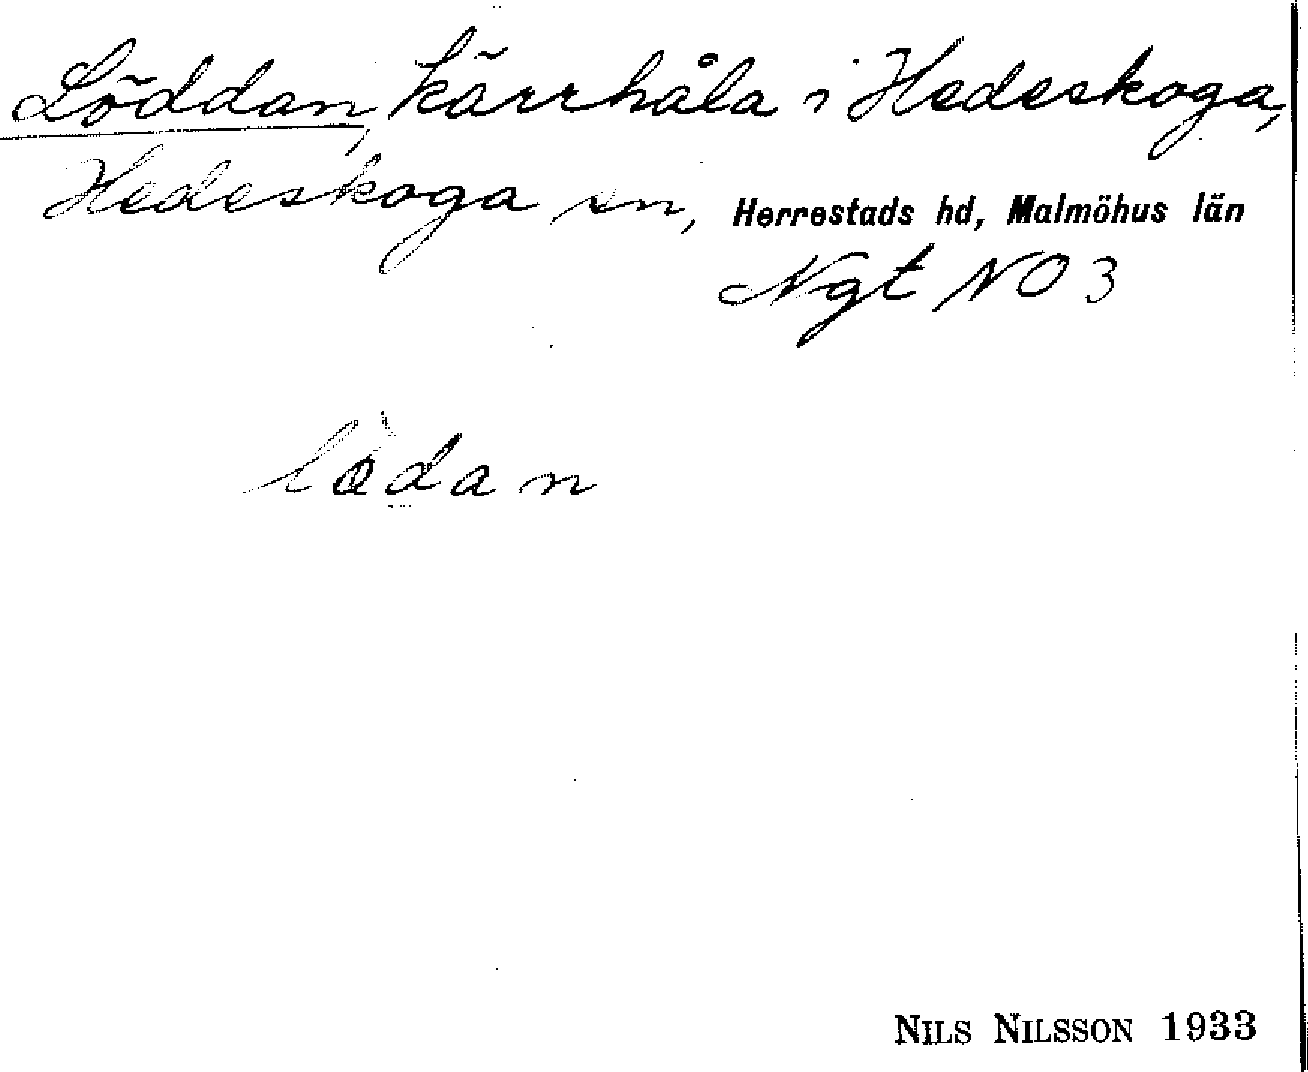 Löddan, kärrhåla i Hedeskoga,
Hedeskoga sn, Herrestads hd, Malmöhus län
Ngt NO 3
lò̤dan
NILS NILSSON 1933